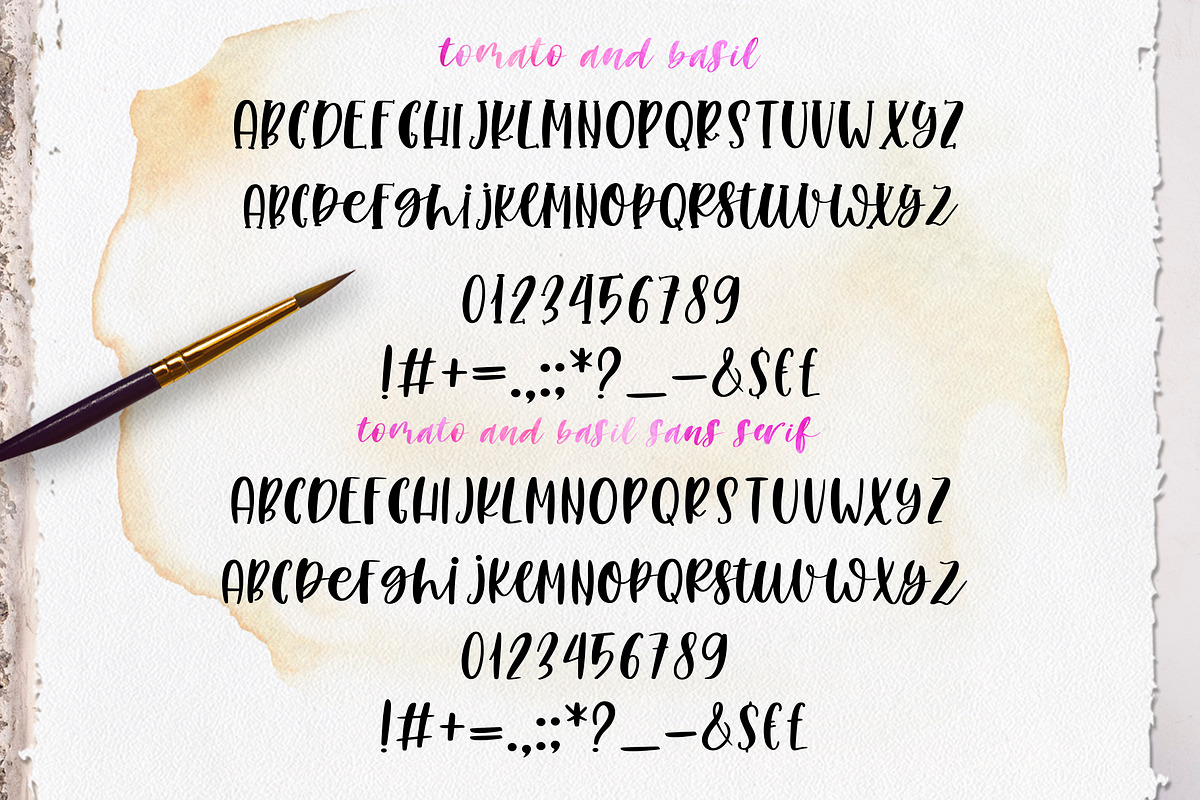 tomato and basil
ABCDEFGHIJKLMNOPQRSTUVWXYZ
ABCDeFghijKlMNOPQRStUVWXyZ
0123456789
!#+=.,:;*?_-&$€£
tomato and basil sans serif
ABCDEFGHIJKLMNOPQRSTUVWXYZ
ABCDeFghijKlMNOPQRStUVWXyZ
0123456789
!#+=.,:;*?_-&$€£